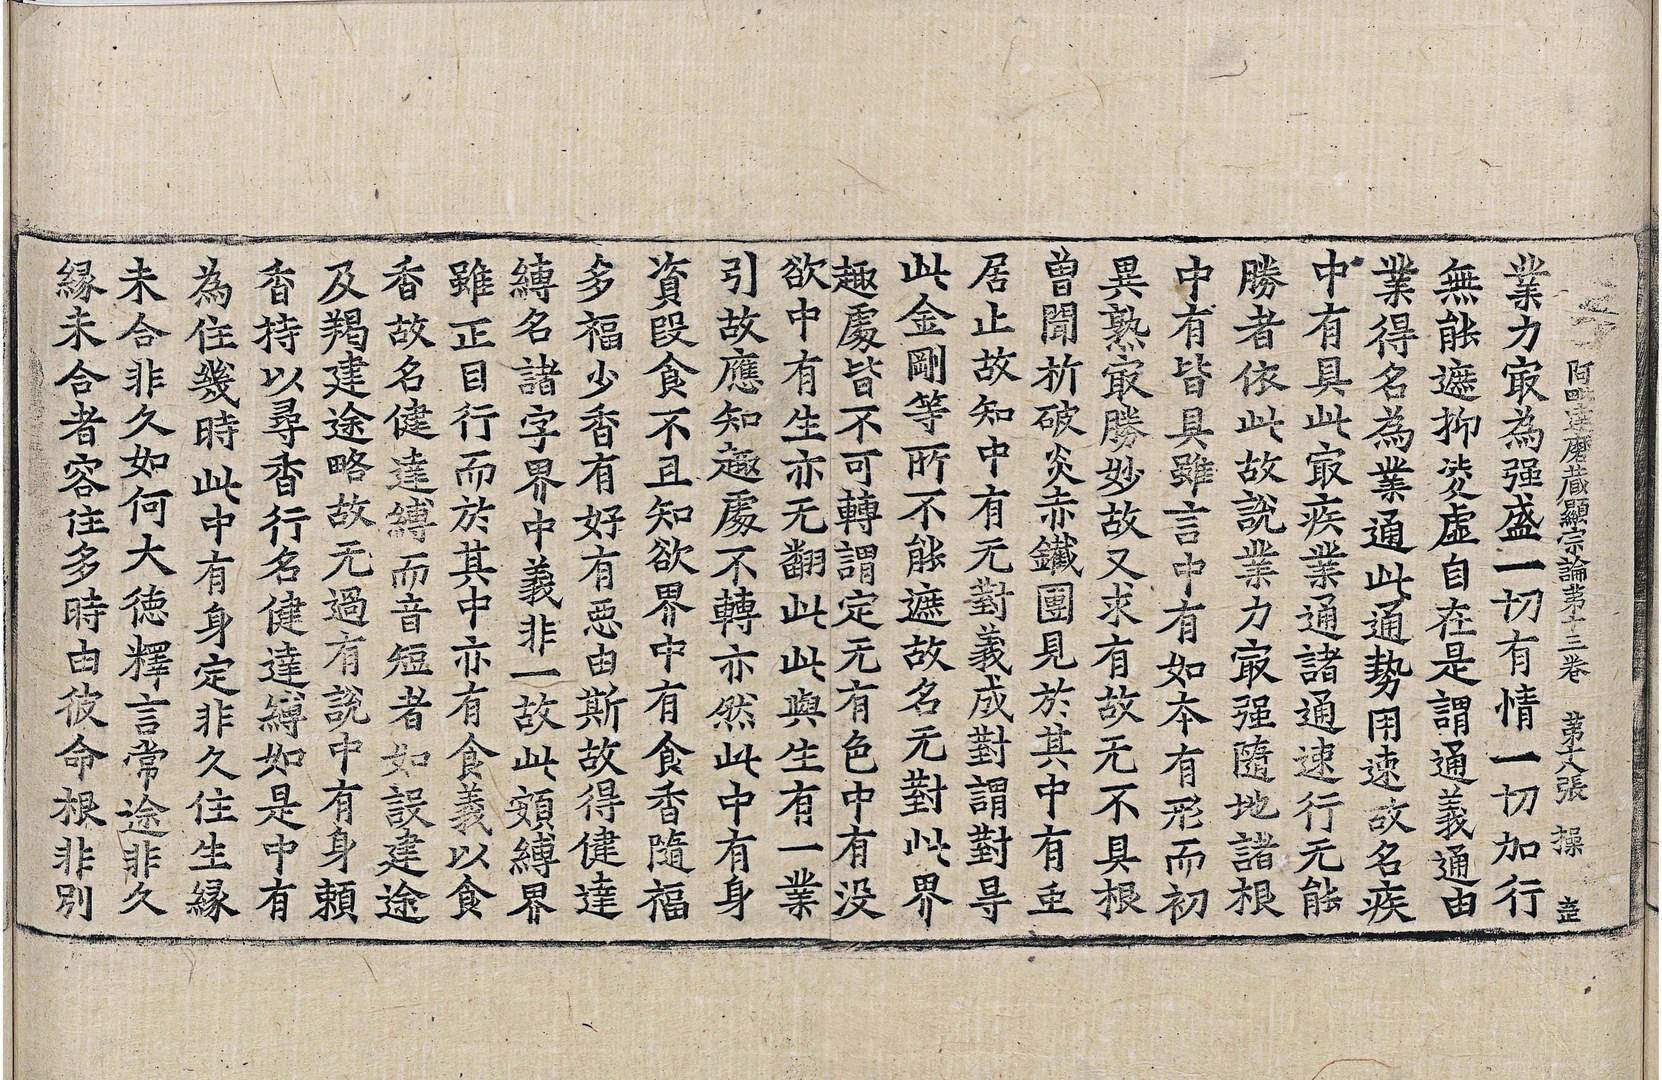 阿毗達磨藏顯宗論第十三卷　第十八張　操
業力㝡為强盛一切有情一切加行
無能遮抑凌虛自在是謂通義通由
業得名為業通此通勢用速故名疾
中有具此㝡疾業通諸通速行无能
勝者依此故說業力㝡强隨地諸根
中有皆具雖言中有如本有形而初
異熟㝡勝妙故又求有故无不具根
曾聞析破炎赤鐵團見於其中有䖝
居止故知中有无對義成對謂對㝵
此金剛等所不能遮故名无對此界
趣處皆不可轉謂定无有色中有没
欲中有生亦无翻此此與生有一業
引故應知趣處不轉亦然此中有身
資段食不且知欲界中有食香隨福
多福少香有好有惡由斯故得健達
縛名諸字界中義非一故此頞縛界
雖正目行而於其中亦有食義以食
香故名健達縛而音短者如設建途
及羯建途略故无過有說中有身頼
香持以尋香行名健達縛如是中有
為住幾時此中有身定非久住生緣
未合非久如何大德釋言常途非久
緣未合者容住多時由彼命根非別